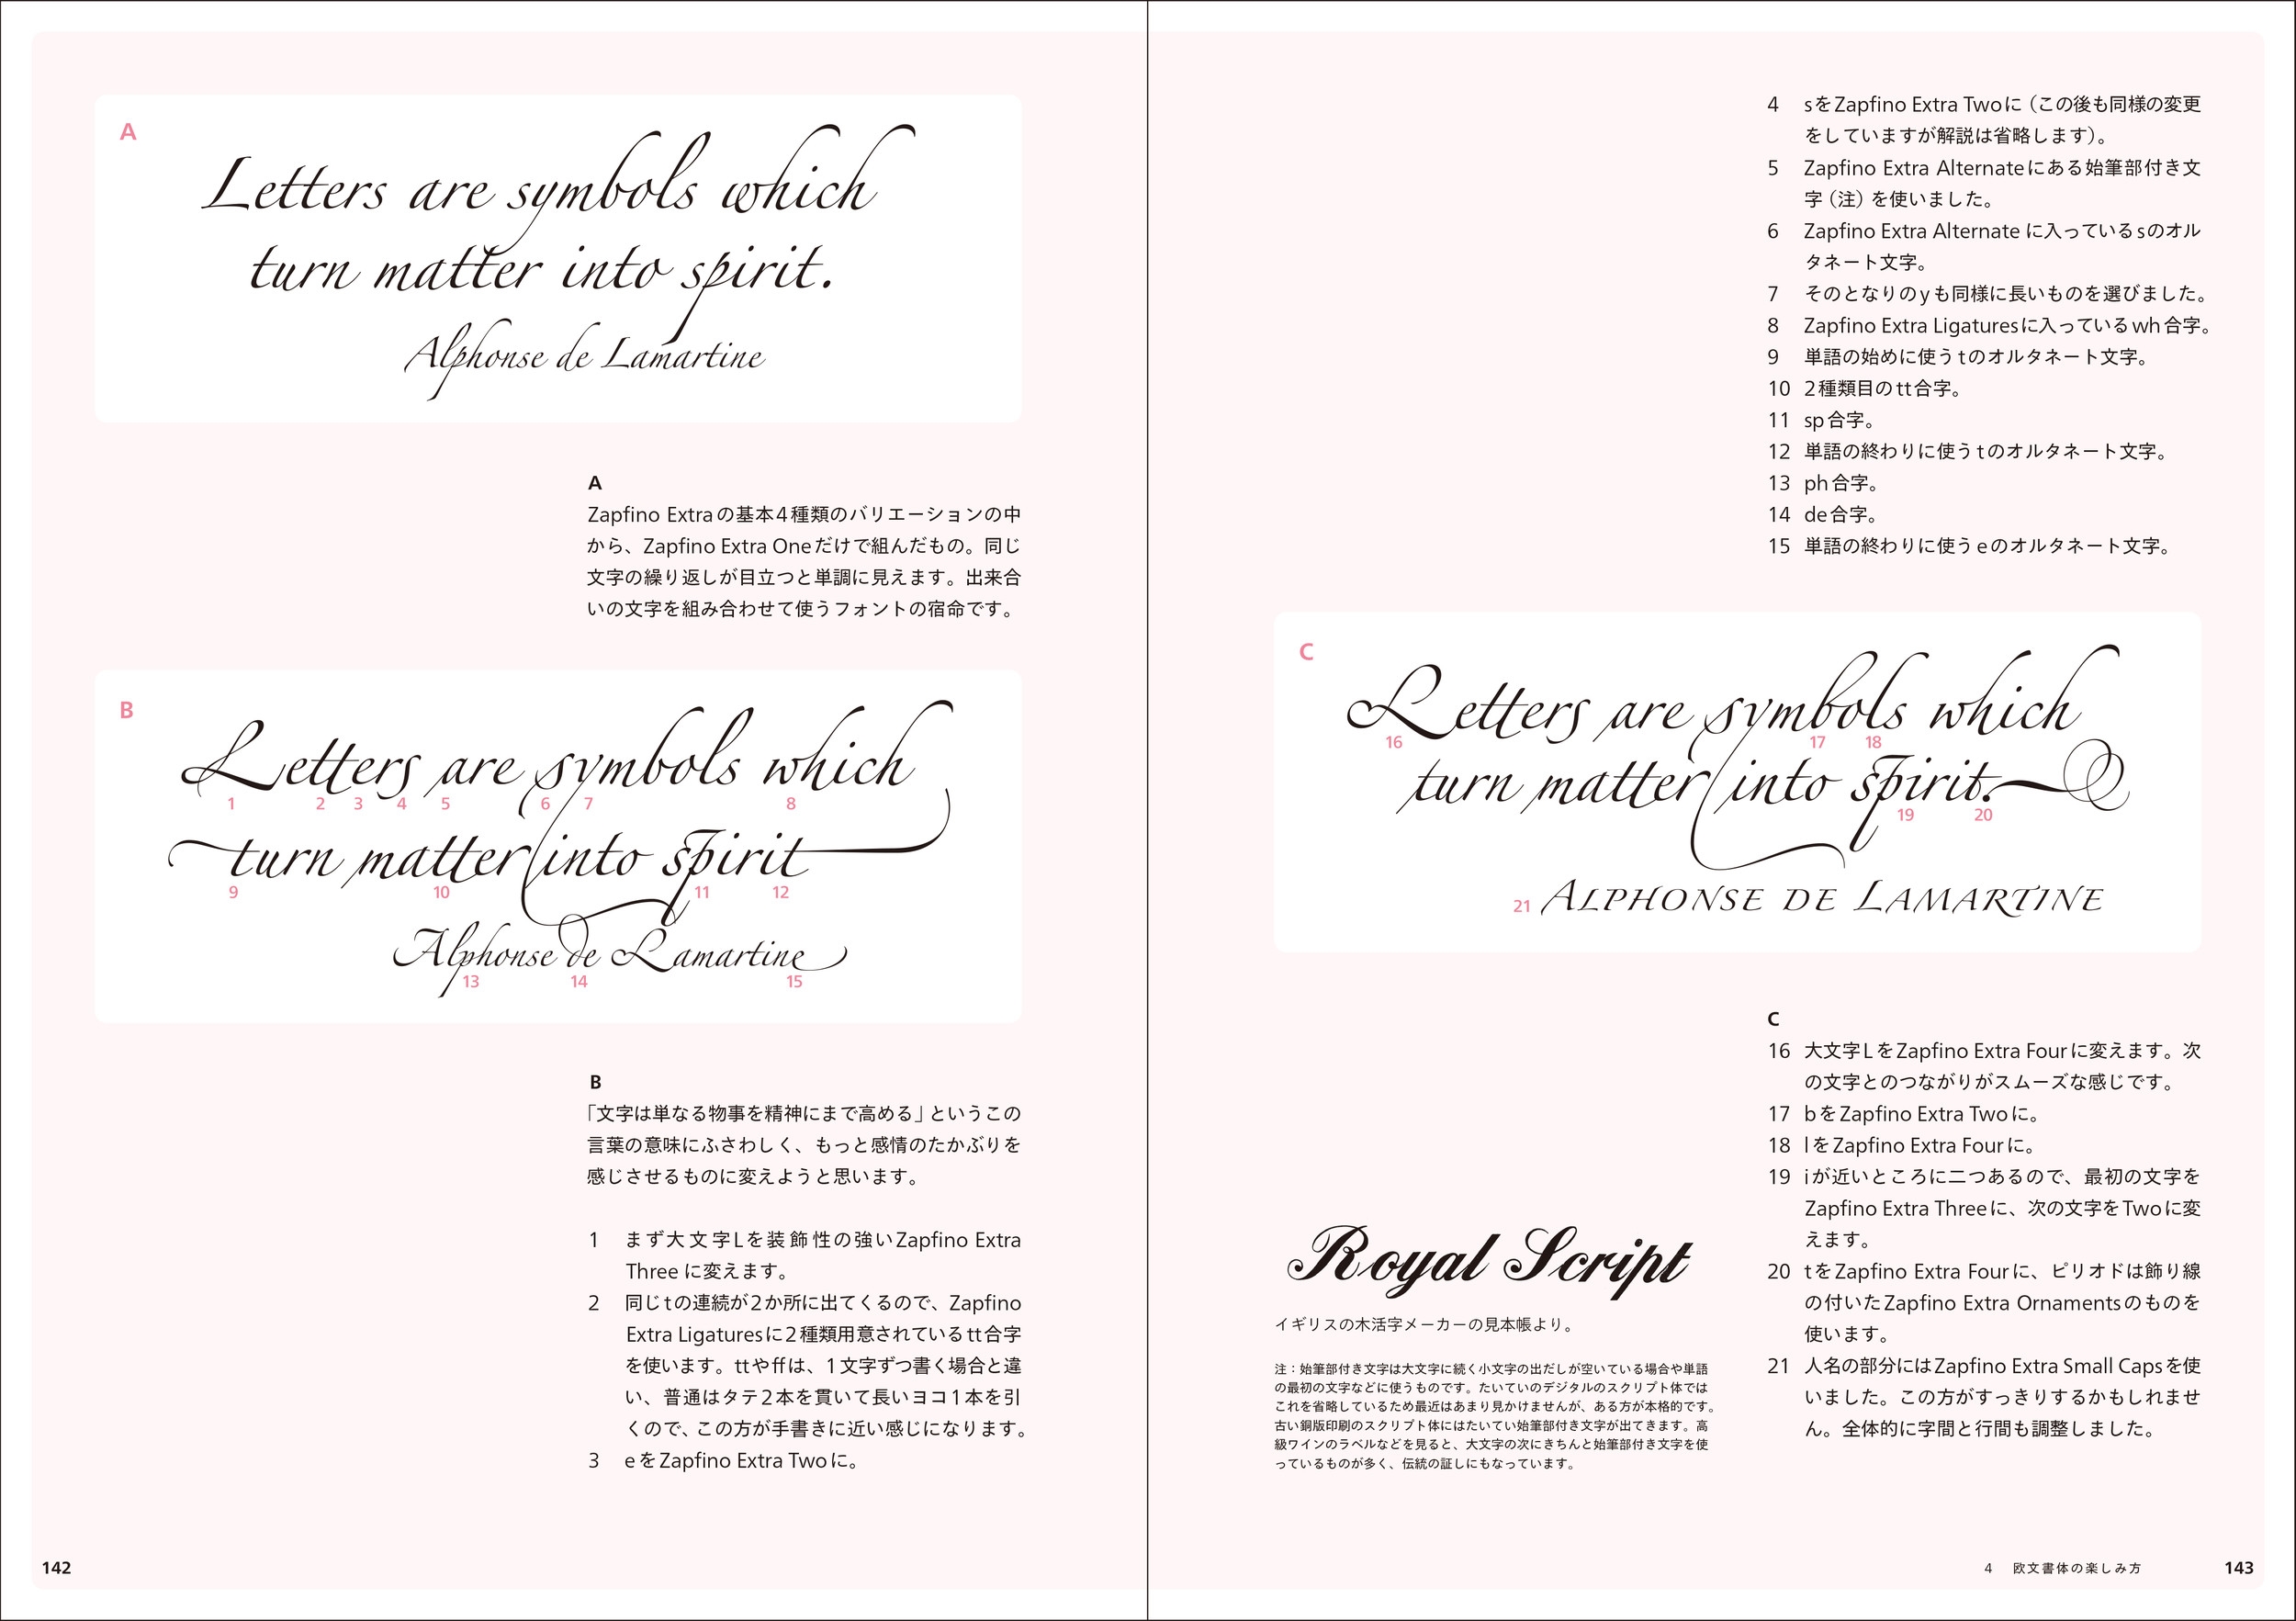 A
Letters are symbols which
turn matter into spirit.
Alphonse de Lamartine
A
Zapfino Extraの基本4種類のバリエーションの中
から、Zapfino Extra Oneだけで組んだもの。同じ
文字の繰り返しが目立つと単調に見えます。出来合
いの文字を組み合わせて使うフォントの宿命です。
B
Letters are symbols which
1 2 3 4 5 6 7 8
turn matter into spirit
9 10 11 12
Alphonse de Lamartine
13 14 15
B
「文字は単なる物事を精神にまで高める」というこの
言葉の意味にふさわしく、もっと感情のたかぶりを
感じさせるものに変えようと思います。
1 まず大文字Lを装飾性の強いZapfino Extra
Three に変えます。
2 同じtの連続が2か所に出てくるので、Zapfino
Extra Ligaturesに2種類用意されているtt合字
を使います。ttやffは、1文字ずつ書く場合と違
い、普通はタテ2本を貫いて長いヨコ1本を引
くので、この方が手書きに近い感じになります。
3 eをZapfino Extra Twoに。
142
4 sをZapfino Extra Twoに（この後も同様の変更
をしていますが解説は省略します）。
5 Zapfino Extra Alternateにある始筆部付き文
字（注）を使いました。
6 Zapfino Extra Alternate に入っているsのオル
タネート文字。
7 そのとなりのyも同様に長いものを選びました。
8 Zapfino Extra Ligaturesに入っているwh合字。
9 単語の始めに使うtのオルタネート文字。
10 2種類目のtt合字。
11 sp合字。
12 単語の終わりに使うtのオルタネート文字。
13 ph合字。
14 de合字。
15 単語の終わりに使うeのオルタネート文字。
C
Letters are symbols which
16 17 18
turn matter into spirit.
19 20
21 Alphonse de Lamartine
C
16 大文字LをZapfino Extra Fourに変えます。次
の文字とのつながりがスムーズな感じです。
17 bをZapfino Extra Twoに。
18 lをZapfino Extra Fourに。
19 iが近いところに二つあるので、最初の文字を
Zapfino Extra Threeに、次の文字をTwoに変
えます。
20 tをZapfino Extra Fourに、ピリオドは飾り線
の付いたZapfino Extra Ornamentsのものを
使います。
21 人名の部分にはZapfino Extra Small Capsを使
いました。この方がすっきりするかもしれませ
ん。全体的に字間と行間も調整しました。
Royal Script
イギリスの木活字メーカーの見本帳より。
注：始筆部付き文字は大文字に続く小文字の出だしが空いている場合や単語
の最初の文字などに使うものです。たいていのデジタルのスクリプト体では
これを省略しているため最近はあまり見かけませんが、ある方が本格的です。
古い銅版印刷のスクリプト体にはたいてい始筆部付き文字が出てきます。高
級ワインのラベルなどを見ると、大文字の次にきちんと始筆部付き文字を使
っているものが多く、伝統の証しにもなっています。
4 欧文書体の楽しみ方 143